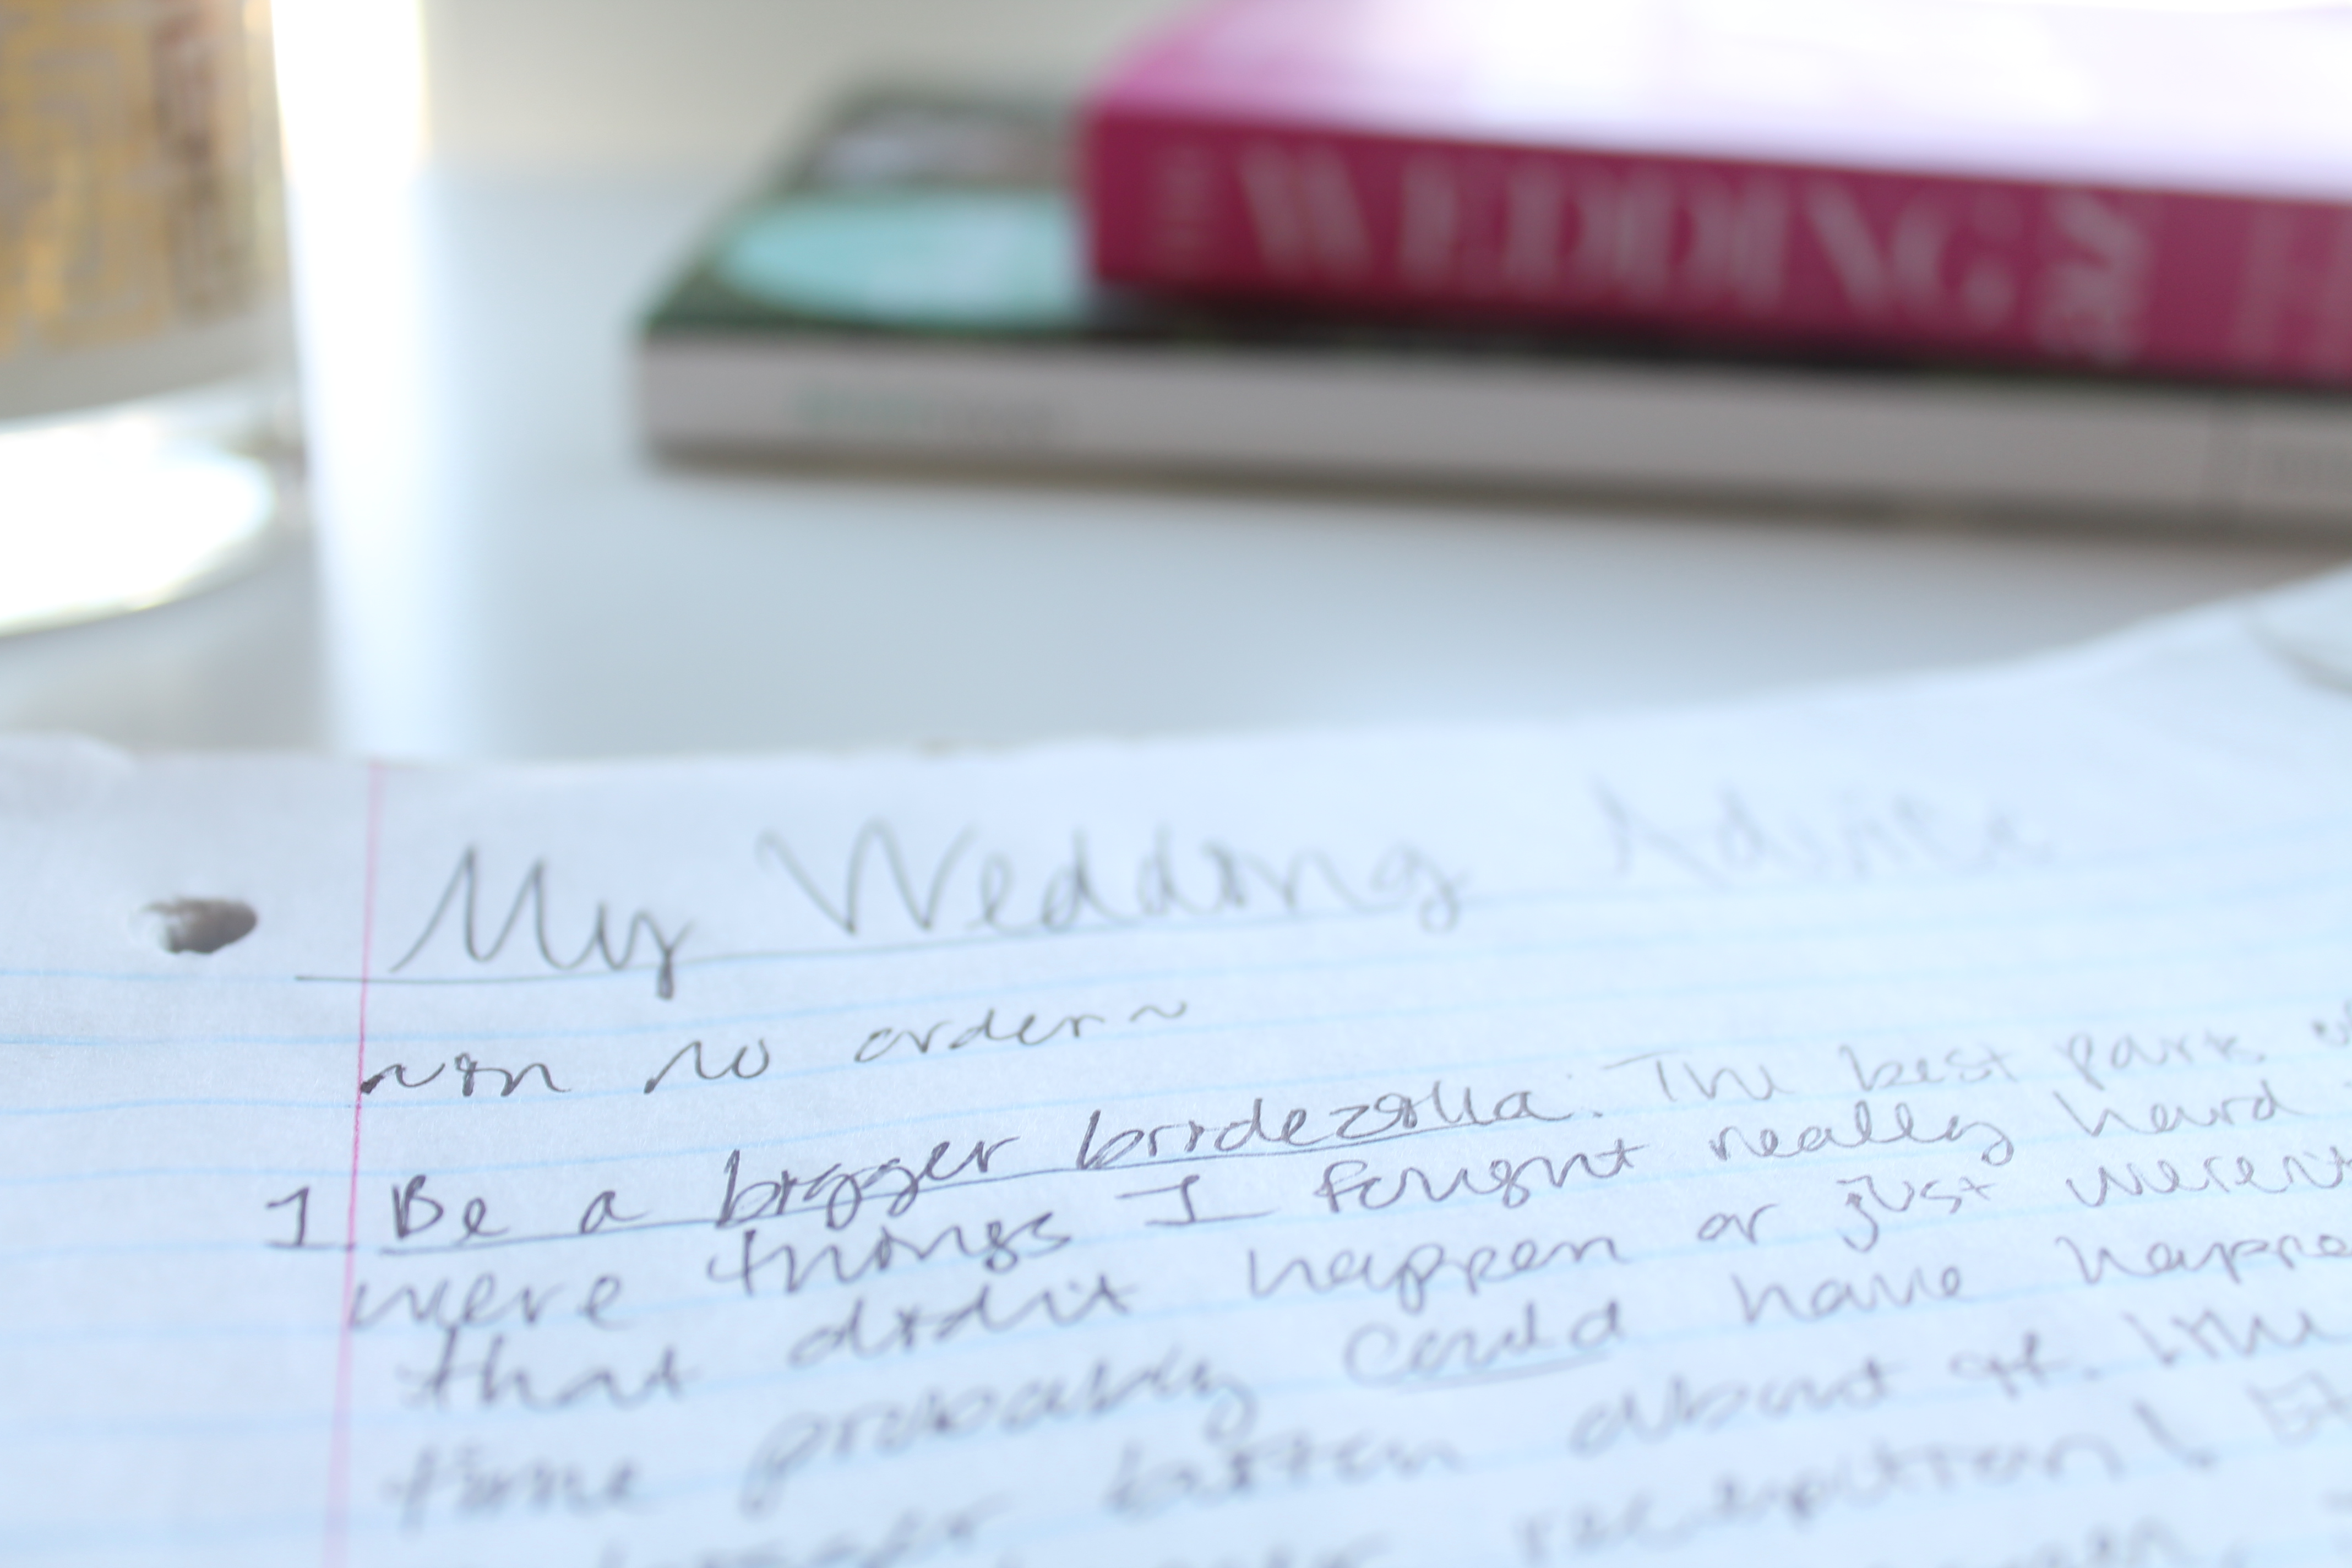 THE WEDDING BOOK
My Wedding Advice
~in no order~
1 Be a bigger bridezilla. The best parts
were things I fought really hard
that didn't happen or just weren't
time probably could have happe
about it. like
reception!